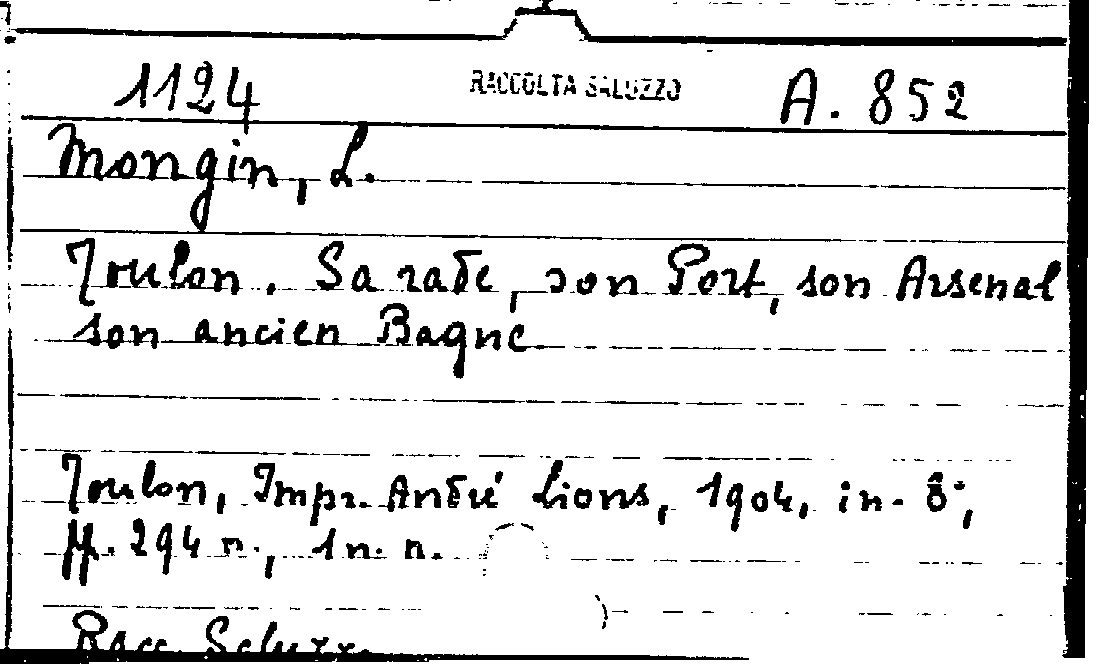 1124 RACCOLTA SALUZZO A. 852
Mongin, L.
Toulon. Sa rade, son Port, son Arsenal
son ancien Bagne
Toulon, Impr. André Lions, 1904, in-8°,
pp. 294 n., 1 n. n.
Racc. Saluzzo